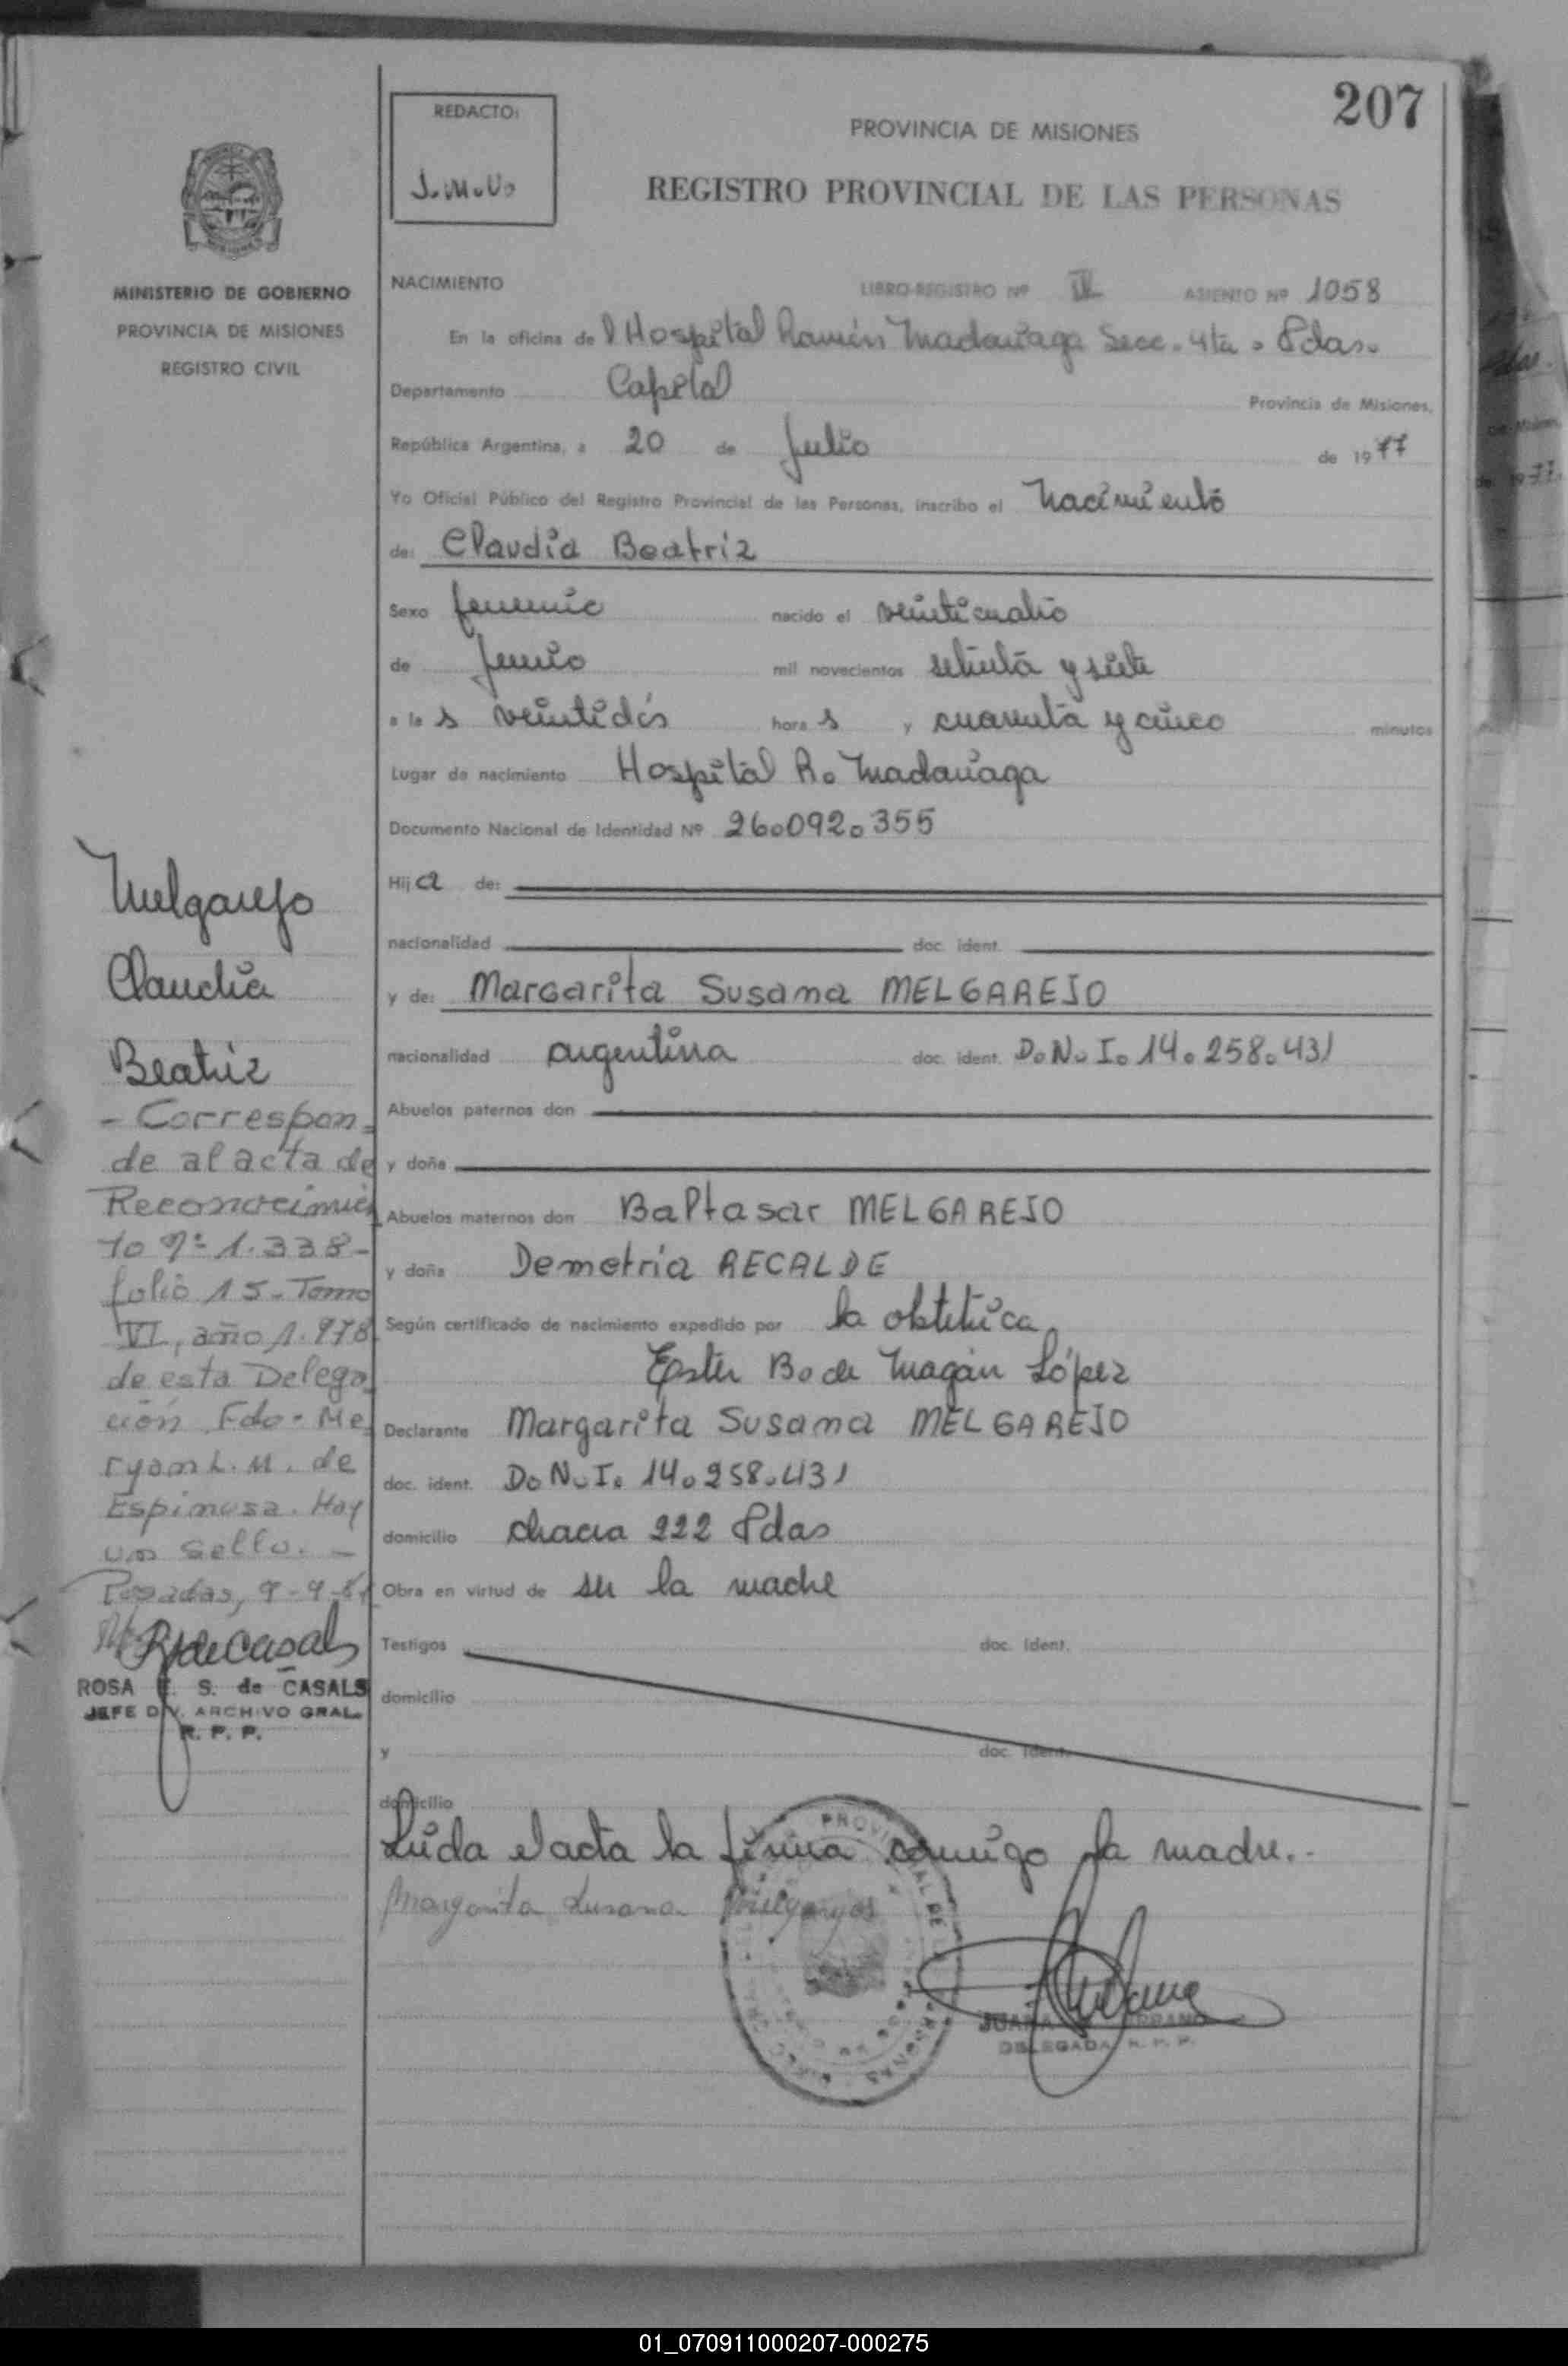 207
REDACTO:
J.M.V.
PROVINCIA DE MISIONES
REGISTRO PROVINCIAL DE LAS PERSONAS
MINISTERIO DE GOBIERNO
PROVINCIA DE MISIONES
REGISTRO CIVIL
NACIMIENTO LIBRO-REGISTRO Nº II ASIENTO Nº 1058
En la oficina de l Hospital Ramón Madariaga Secc. 4ta. Pdas.
Departamento Capital Provincia de Misiones,
República Argentina, a 20 de Julio de 1977
Yo Oficial Público del Registro Provincial de las Personas, inscribo el Nacimiento
de: Claudia Beatriz
Sexo femenino nacido el veinticuatro
de Junio mil novecientos setenta y siete
a la s veintidós hora s y cuarenta y cinco minutos
Lugar de nacimiento Hospital R. Madariaga
Documento Nacional de Identidad Nº 26.092.355
Hij a de:
nacionalidad doc. ident.
y de: Margarita Susana MELGAREJO
nacionalidad argentina doc. ident. D.N.I. 14.258.431
Abuelos paternos don
y doña
Abuelos maternos don Baltasar MELGAREJO
y doña Demetria RECALDE
Según certificado de nacimiento expedido por la obtetrica
Ester B. de Magán López
Declarante Margarita Susana MELGAREJO
doc. ident. D.N.I. 14.258.431
domicilio chacra 222 Pdas
Obra en virtud de ser la madre
Testigos doc. ident.
domicilio
y doc. ident.
domicilio
Leída el acta la firma conmigo la madre.-
Margarita Susana
DELEGADA R. P. P.
Melgarejo
Claudia
Beatriz
- Correspon=
de al acta de
Reconocimien
to Nº 1.338-
folio 15-Tomo
VI, año 1.978
de esta Delega
ción Fdo. Me
ryam L. M. de
Espinosa. Hay
un sello. -
Posadas, 9-9-81
ROSA E. S. de CASALS
JEFE DIV. ARCHIVO GRAL.
R. P. P.
01_070911000207-000275